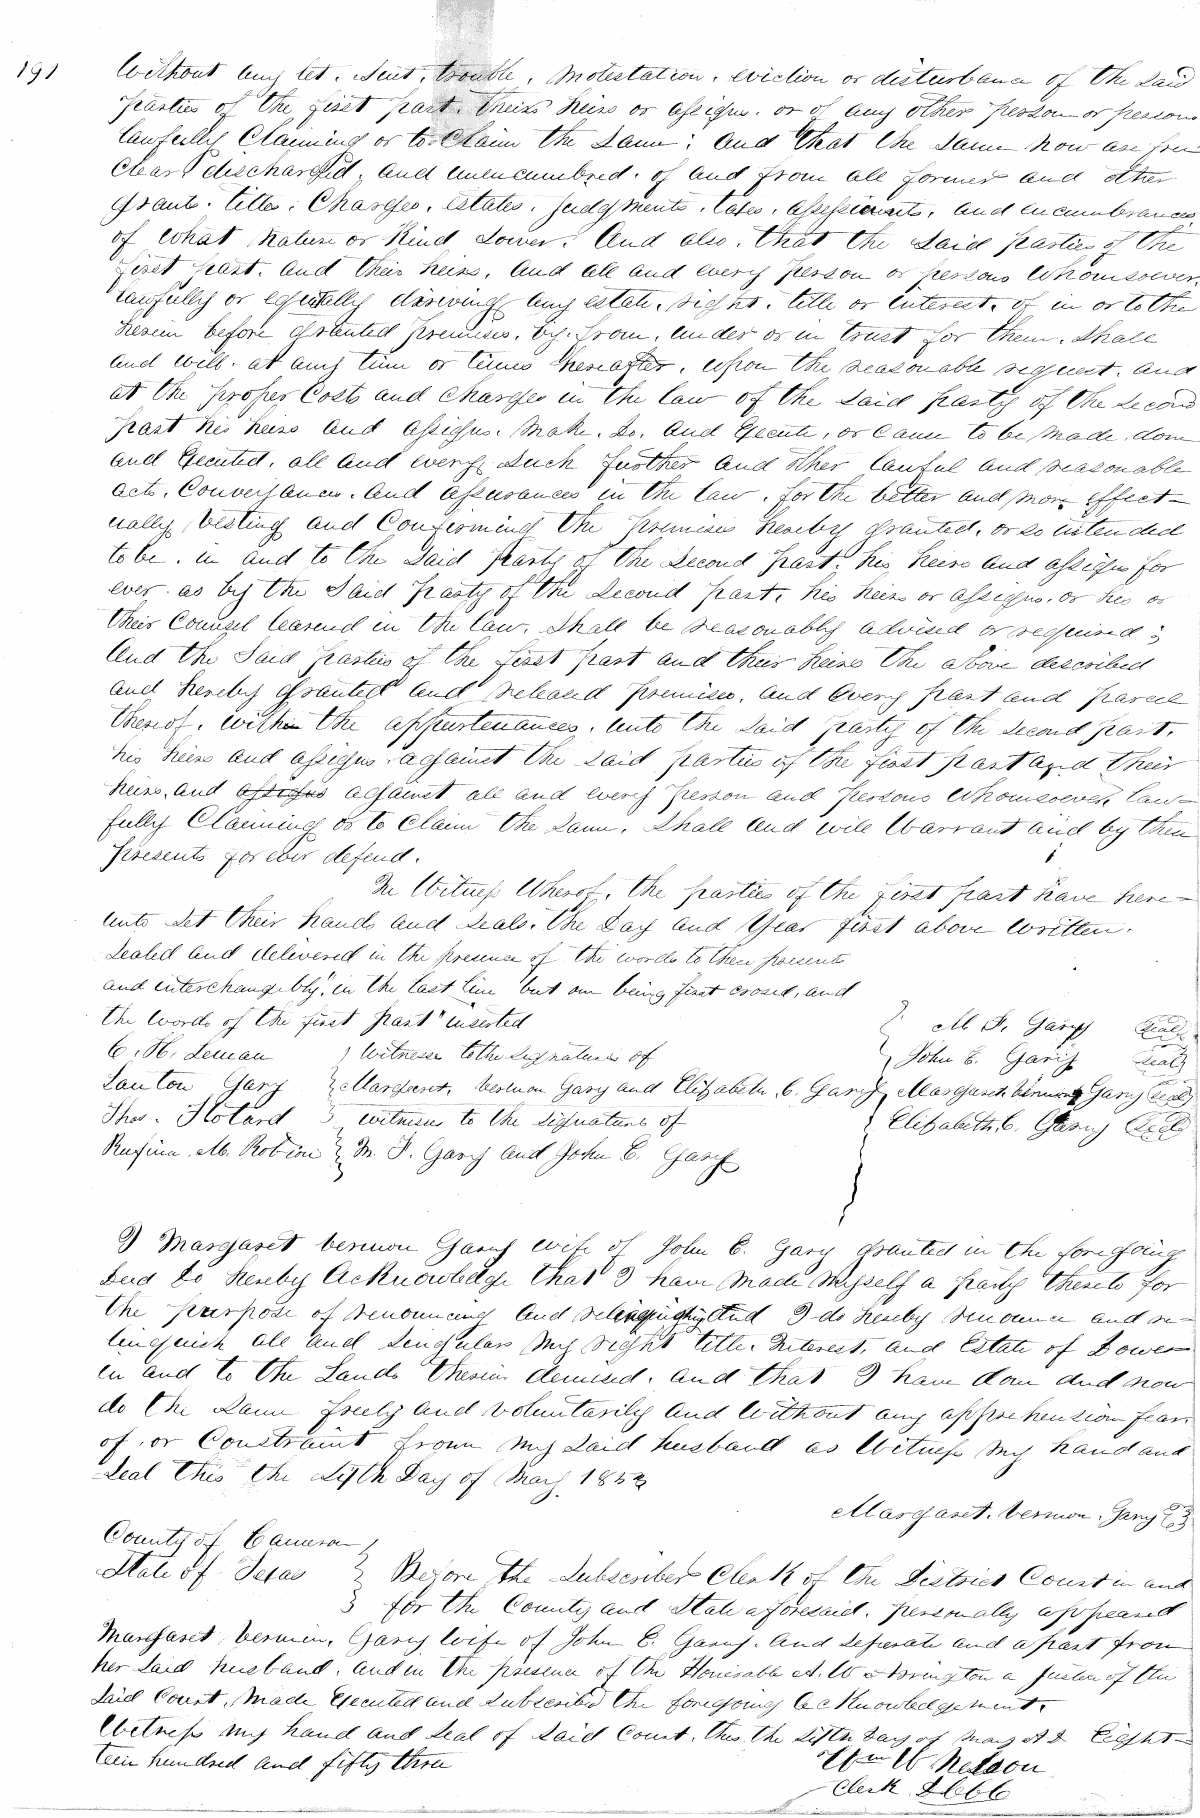 191
Without any let, suit, trouble, molestation, eviction or disturbance of the said
parties of the first part, theirs heirs or assigns, or of any other person or persons
lawfully Claiming or to Claim the Same; and that the Same now are free
Clear discharged, and unencumbred, of and from all former and other
grants, titles, Charges, estates, judgments, taxes, assessments, and encumbrances
of what Nature or Kind Soever. And also, that the Said parties of the
first part, and their heirs, and all and every person or persons Whomsoever,
lawfully or equitally deriving any estate, right, title or interest, of in or to the
herein before granted premises, by, from, under or in trust for them, Shall
and will, at any time or times hereafter, upon the reasonable request, and
at the proper Costs and Charges in the law of the Said party of the Second
part his heirs and assigns, Make, do, and Execute, or Cause to be Made, done
and Executed, all and every, Such further and other lawful and reasonable
acts, Conveyances, and assurances in the law, for the better and more effect-
ually Vesting and Confirming the premises hereby granted, or so intended
to be, in and to the Said party of the Second part, his heirs and assigns for
ever, as by the Said party of the Second part, his heirs or assigns, or his or
their Counsel learend in the law, Shall be reasonably advised or required;
And the Said parties of the first part and their heirs the above described
and hereby granted and released premises, and Every part and parcel
thereof, with the appurtenances, unto the Said party of the Second part,
his heirs and assigns, against the Said parties of the first part and their
heirs, and assigns against all and every person and persons Whomsoever, law-
fully Claiming or to Claim the Same, Shall and will Warrant and by these
presents for ever defend.
In Witness Wherof, the parties of the first part have here-
unto Set their hands and Seals, the Day and Year first above Written.
Sealed and delivered in the presence of the words to these presents
and interchangebly, in the last line but one being first erased, and
the Words of the first part "inserted
M F. Gary Seal
C. H. Leman Witnesse to the Signatures of John E. Gary Seal
Lauton Gary Margaret, Vermon Gary and Elizabeth, C. Gary Margaret Vermon Gary Seal
Thos. Hotard witnesses to the Signatures of Elizabeth, C. Gary Seal
Rufina. M. Robione M. F. Gary and John E. Gary
I Margaret Vermon Gary wife of John E. Gary granted in the foregoing
Deed do hereby Acknowledge that I have Made Myself a party thereto for
the purpose of renouncing and relinquishing And I do hereby renounce and re-
linquish all and Singular My right title, Interest, and Estate of Dower
in and to the Lands therein demised, and that I have done and now
do the Same freely and Voluntarily and Without any apprehension fear,
of, or Constraint from My Said husband as Witness My hand and
Seal this the Sixth Day of May 1853
Margaret. Vermon. Gary
County of Cameron
State of Texas Before the Subscriber Clerk of the District Court in and
for the County and State aforesaid, personally appeared
Margaret, Vermon, Gary Wife of John E. Gary, and Seperate and apart from
her Said husband, and in the presence of the Honorable A. W. Arrington a Justice of the
Said Court, Made Executed and Subscribed the foregoing Acknowledgement,
Witness My hand and Seal of Said Court, this the Sixth Day of May A D Eight-
teen hundred and fifty three
Wm W Nelson
Clerk D C C C